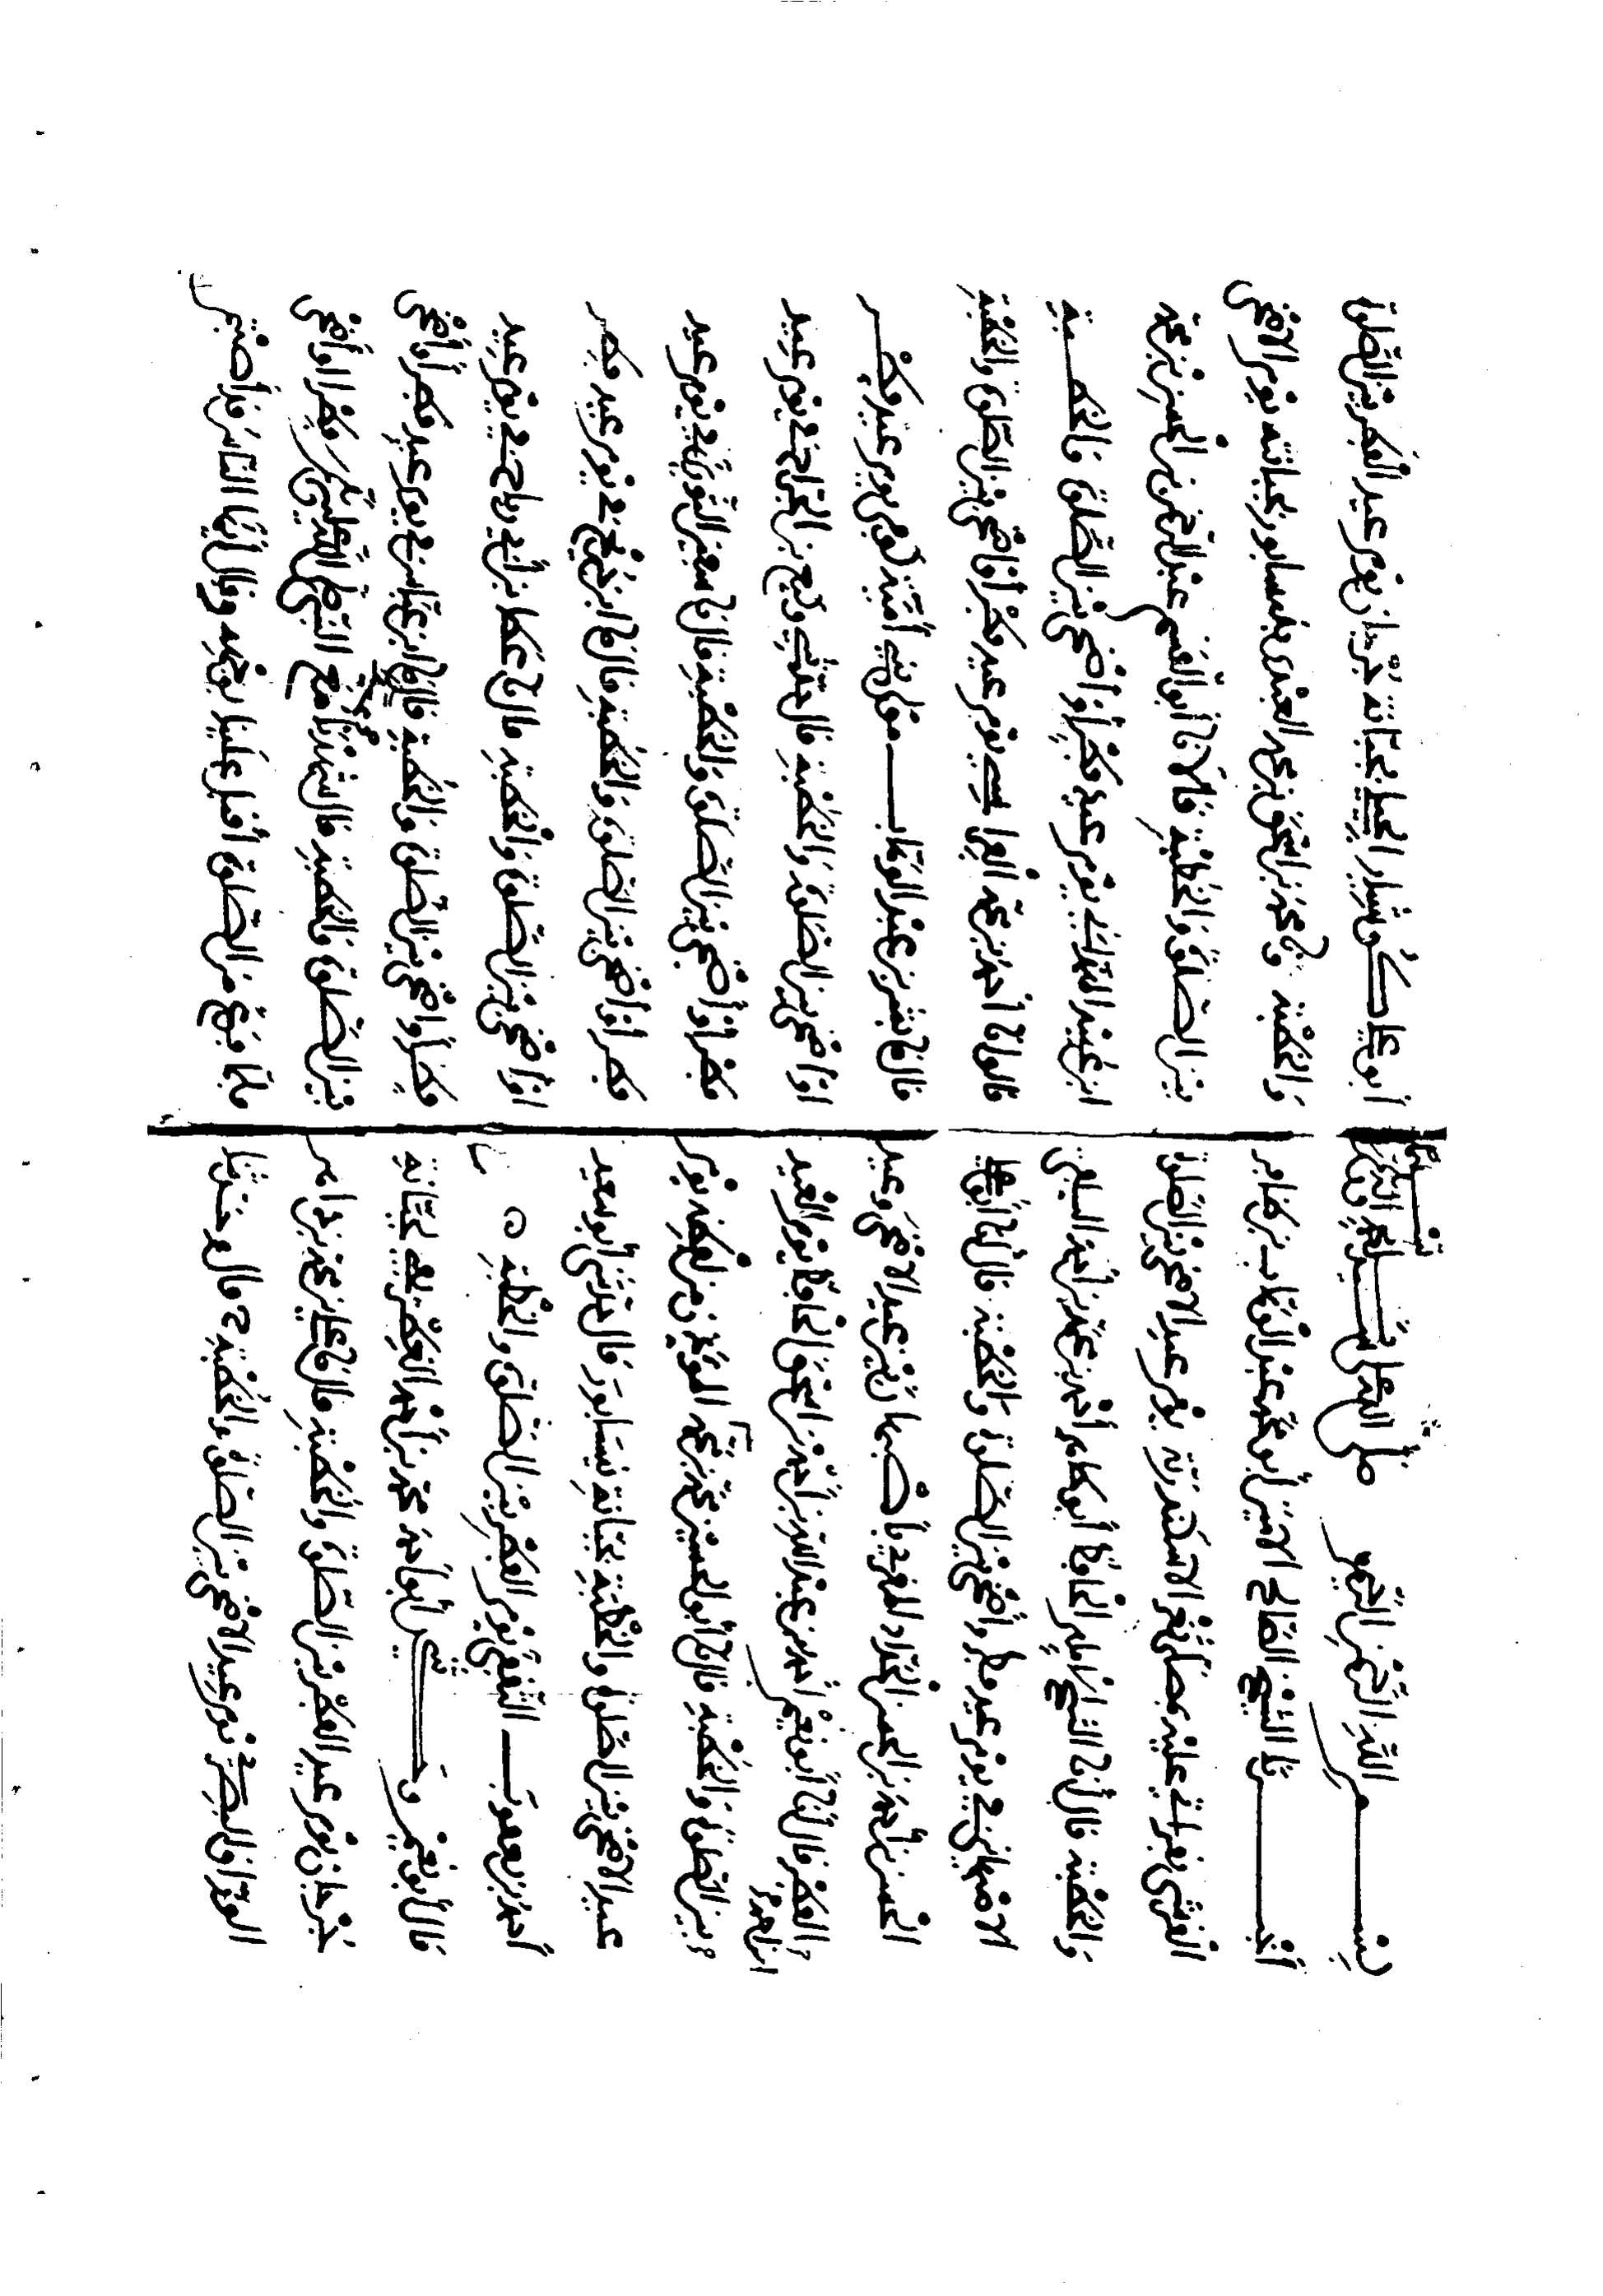 بسم الله الرحمن الرحيم صلى الله على سيدنا محمد
أخبرنا الشيخ الصالح الامين أبو محمد عبد الوهاب بن ظافر
القرشي بقراءتي عليه بمصلى ثغر الاسكندرية يوم عيد الاضحى بين الصلوة
والخطبة قال أنا الشيخ الامام الحافظ أبو طاهر أحمد بن محمد بن أحمد السلفي
الاصبهاني في يوم عيد فطر وأضحى بين الصلوة والخطبة قال أنا أبو علي
الحسن بن أحمد بن الحسن الحداد المقرئ بأصبهان في عيد الاضحى وعيد
الفطر قال أنا أبو نعيم أحمد بن عبد الله بن أحمد بن إسحق الحافظ يوم العيد
بين الصلوة والخطبة قال نا أبو الحسين محمد بن محمد المؤيد من لفظه يوم
عيد الاضحى بين الصلوة والخطبة بجبانة نيسابور قال حدثني أبو سعيد
أحمد بن يعقوب الثقفي يوم الفطر بين الصلوة والخطبة
قال أبو نعيم و أبو أحمد محمد بن أحمد الغطريفي بجبانة
جرجان يوم عيد الفطر بين الصلوة والخطبة قال نا علي بن محمد بن داهر
الوراق البصري يوم عيد الاضحى بين الصلوة والخطبة ح قال وحدثنا
أبو علي بجبانة جرجان يوم عيد الفطر بين الصلوة
والخطبة نا محمد بن إسحق بن محمد العبدي بنيسابور بجبانته يوم الاضحى
بين الصلوة والخطبة قالا نا أبو القسم عبد الرحمن بن الحسن بن محمد
ابن عبيد يوم عيد فطر أو أضحى بين الصلوة والخطبة
قالوا نا أحمد بن محمد يوم عيد فطر أو أضحى بين الصلوة والخطبة
قال نا بشر بن عبد الوهاب مولى بني أمية يوم عيد فطر
او أضحى بين الصلوة والخطبة قال حدثني وكيع بن الجراح في يوم عيد
فطر أو أضحى بين الصلوة والخطبة قال نا سفين الثوري في يوم عيد
فطر أو أضحى بين الصلوة والخطبة قال نا ابن جريج في يوم عيد فطر
او أضحى بين الصلوة والخطبة قال نا عطا بن أبي رباح في يوم عيد
فطر أو أضحى بين الصلوة والخطبة قال نا ابن عباس في يوم عيد فطر أو أضحى
بين الصلوة والخطبة قال شهدت مع النبي صلى الله عليه وسلم فطر أو أضحى
فلما فرغ من الصلوة أقبل علينا بوجهه وقال أيها الناس قد أصبتم